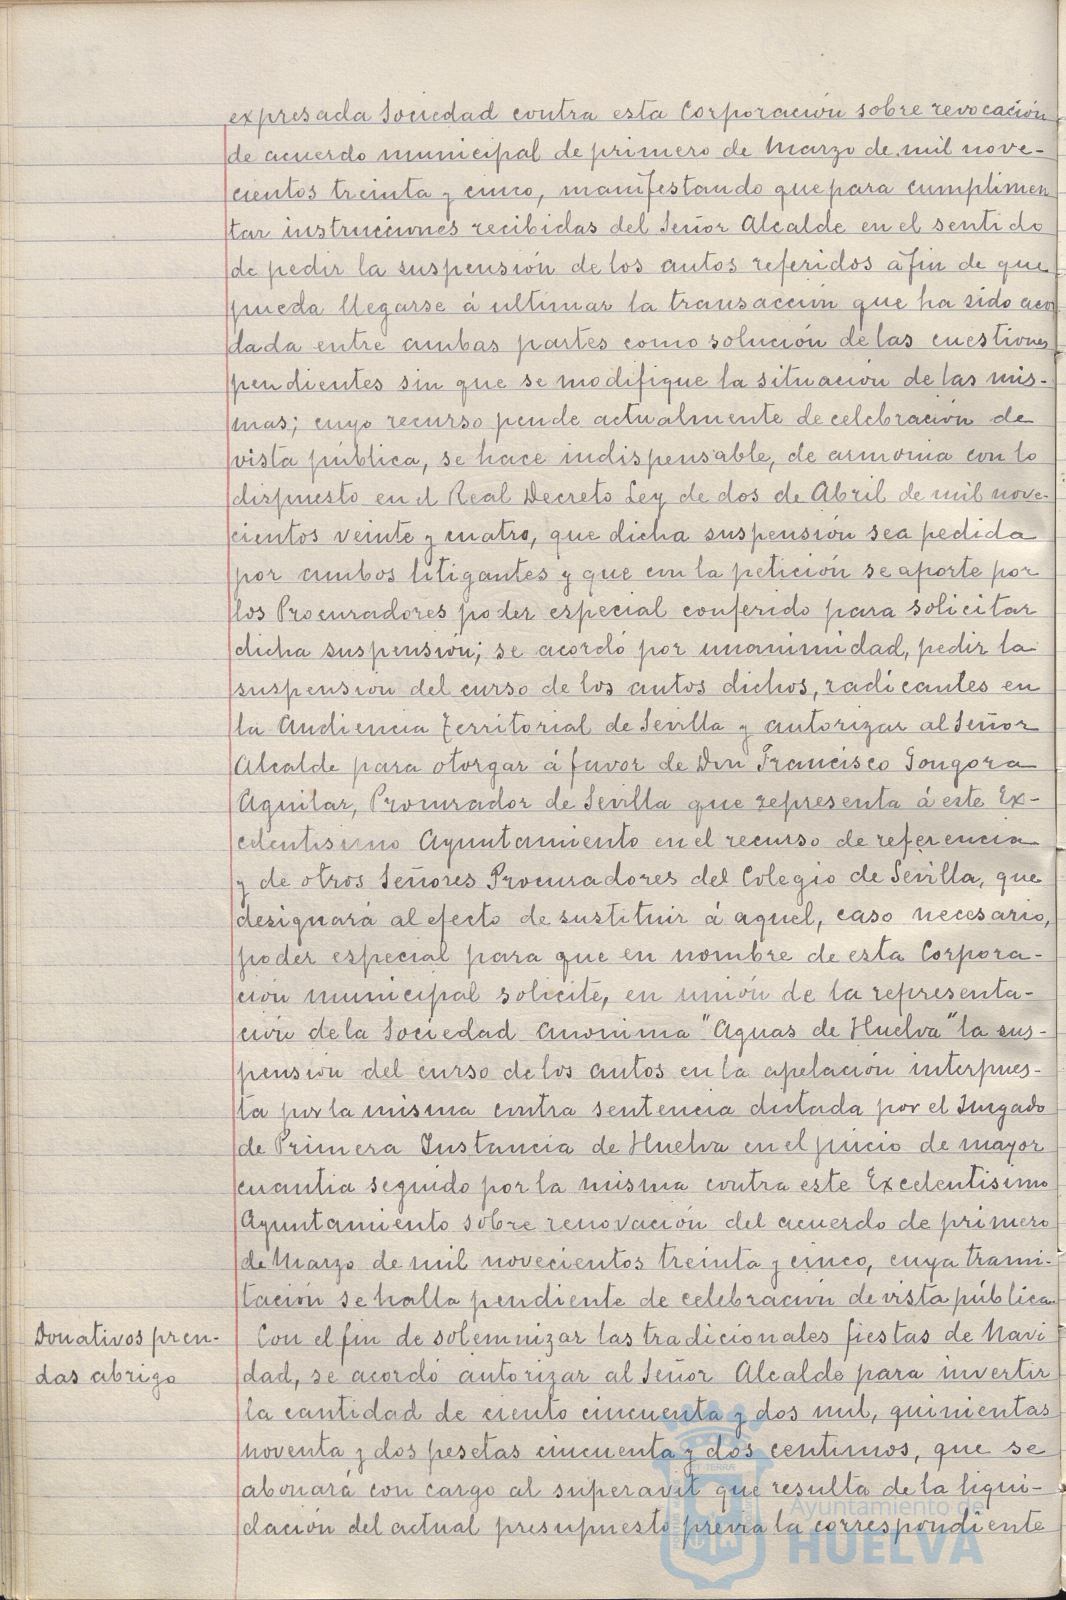 expresada Sociedad contra esta Corporación sobre revocación
de acuerdo municipal de primero de Marzo de mil nove-
cientos treinta y cinco, manifestando que para cumplimen
tar instrucciones recibidas del Señor Alcalde en el sentido
de pedir la suspensión de los autos referidos afin de que
pueda llegarse á ultimar la transacción que ha sido acor
dada entre ambas partes como solución de las cuestiones
pendientes sin que se modifique la situación de las mis-
mas; cuyo recurso pende actualmente de celebración de
vista pública, se hace indispensable, de armonia con lo
dispuesto en el Real Decreto Ley de dos de Abril de mil nove-
cientos veinte y cuatro, que dicha suspensión sea pedida
por ambos litigantes y que con la petición se aporte por
los Procuradores poder especial conferido para solicitar
dicha suspensión; se acordó por unanimidad, pedir la
suspension del curso de los autos dichos, radicantes en
la Audiencia Territorial de Sevilla y autorizar al Señor
Alcalde para otorgar á favor de Don Francisco Gongora
Aguilar, Procurador de Sevilla que representa á este Ex-
celentisimo Ayuntamiento en el recurso de referencia
y de otros Señores Procuradores del Colegio de Sevilla, que
designará al efecto de sustituir á aquel, caso necesario,
poder especial para que en nombre de esta Corpora-
ción municipal solicite, en unión de la representa-
ción de la Sociedad Anonima "Aguas de Huelva" la sus-
pensión del curso de los autos en la apelación interpues-
ta por la misma contra sentencia dictada por el Juzgado
de Primera Instancia de Huelva en el juicio de mayor
cuantia seguido por la misma contra este Excelentisimo
Ayuntamiento sobre renovación del acuerdo de primero
de Marzo de mil novecientos treinta y cinco, cuya trami-
tación se halla pendiente de celebración de vista pública.
Donativos pren-
das abrigo
Con el fin de solemnizar las tradicionales fiestas de Navi
dad, se acordó autorizar al Señor Alcalde para invertir
la cantidad de ciento cincuenta y dos mil, quinientas
noventa y dos pesetas cincuenta y dos centimos, que se
abonará con cargo al superavit que resulta de la liqui-
dación del actual presupuesto previa la correspondiente
Ayuntamiento de
HUELVA